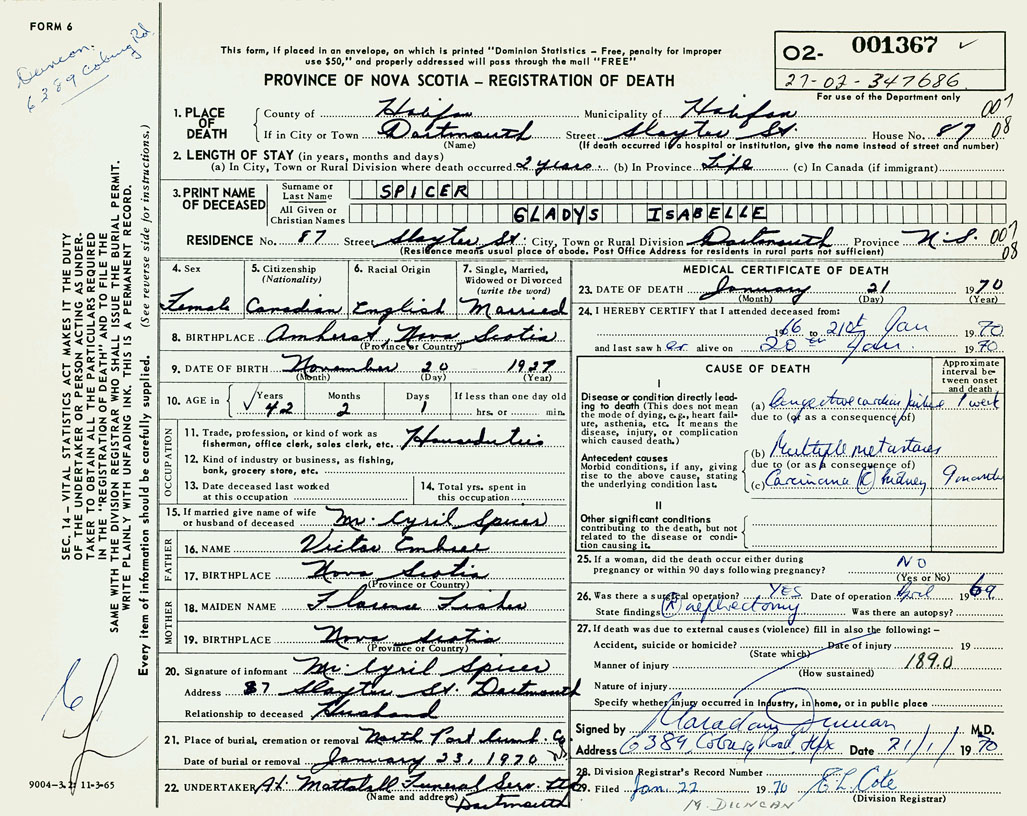 FORM 6
Duncan.
6389 Coburg Rd.
This form, if placed in an envelope, on which is printed "Dominion Statistics – Free, penalty for improper
use $50," and properly addressed will pass through the mail "FREE"
PROVINCE OF NOVA SCOTIA – REGISTRATION OF DEATH
O2- 001367
27-02-347686
For use of the Department only
1. PLACE OF DEATH { County of Halifax Municipality of Halifax 007
If in City or Town Dartmouth Street Slayter St. House No. 87 08
(Name) (If death occurred in a hospital or institution, give the name instead of street and number)
2. LENGTH OF STAY (in years, months and days)
(a) In City, Town or Rural Division where death occurred 2 years (b) In Province Life (c) In Canada (if immigrant)
3. PRINT NAME OF DECEASED { Surname or Last Name SPICER
All Given or Christian Names GLADYS ISABELLE
RESIDENCE No. 87 Street Slayter St. City, Town or Rural Division Dartmouth Province N.S. 007
08
(Residence means usual place of abode. Post Office Address for residents in rural parts not sufficient)
4. Sex Female
5. Citizenship (Nationality) Canadian
6. Racial Origin English
7. Single, Married, Widowed or Divorced (write the word) Married
8. BIRTHPLACE Amherst, Nova Scotia
(Province or Country)
9. DATE OF BIRTH November 20 1927
(Month) (Day) (Year)
10. AGE in { Years Months Days If less than one day old
42 2 1 hrs. or min.
OCCUPATION
11. Trade, profession, or kind of work as fisherman, office clerk, sales clerk, etc. Houseduties
12. Kind of industry or business, as fishing, bank, grocery store, etc.
13. Date deceased last worked at this occupation
14. Total yrs. spent in this occupation
15. If married give name of wife or husband of deceased Mr. Cyril Spicer
FATHER
16. NAME Victor Embree
17. BIRTHPLACE Nova Scotia
(Province or Country)
MOTHER
18. MAIDEN NAME Florence Fisher
19. BIRTHPLACE Nova Scotia
(Province or Country)
20. Signature of informant Mr. Cyril Spicer
Address 87 Slayter St. Dartmouth
Relationship to deceased Husband
21. Place of burial, cremation or removal North Port Cumb. Co. N.S.
Date of burial or removal January 23, 1970
22. UNDERTAKER Mattatall Funeral Serv. Ltd
(Name and address) Dartmouth
MEDICAL CERTIFICATE OF DEATH
23. DATE OF DEATH January 21 1970
(Month) (Day) (Year)
24. I HEREBY CERTIFY that I attended deceased from:
1966 to 21st Jan 1970
and last saw her alive on 20th Jan. 1970
CAUSE OF DEATH
Approximate interval between onset and death
I
Disease or condition directly leading to death (This does not mean the mode of dying, e.g., heart failure, asthenia, etc. It means the disease, injury, or complication which caused death.)
(a) Congestive cardiac failure 1 week
due to (or as a consequence of)
Antecedent causes
Morbid conditions, if any, giving rise to the above cause, stating the underlying condition last.
(b) Multiple metastases
due to (or as a consequence of)
(c) Carcinoma (R) kidney 9 months
II
Other significant conditions
contributing to the death, but not related to the disease or condition causing it.
25. If a woman, did the death occur either during pregnancy or within 90 days following pregnancy? NO
(Yes or No)
26. Was there a surgical operation? YES Date of operation April 1969
State findings (R) nephrectomy Was there an autopsy?
27. If death was due to external causes (violence) fill in also the following: –
Accident, suicide or homicide? Date of injury 19
(State which)
Manner of injury 189.0
(How sustained)
Nature of injury
Specify whether injury occurred in Industry, in home, or in public place
Signed by Duncan M.D.
Address 6389 Coburg Road, Hfx Date 21/1/1970
28. Division Registrar's Record Number
29. Filed Jan. 22 1970 E L Cote
(Division Registrar)
M. DUNCAN
SEC. 14 – VITAL STATISTICS ACT MAKES IT THE DUTY
OF THE UNDERTAKER OR PERSON ACTING AS UNDER-
TAKER TO OBTAIN ALL THE PARTICULARS REQUIRED
IN THE "REGISTRATION OF DEATH" AND TO FILE THE
SAME WITH THE DIVISION REGISTRAR WHO SHALL ISSUE THE BURIAL PERMIT.
WRITE PLAINLY WITH UNFADING INK. THIS IS A PERMANENT RECORD.
Every item of information should be carefully supplied. (See reverse side for instructions.)
9004-3.2: 11-3-65